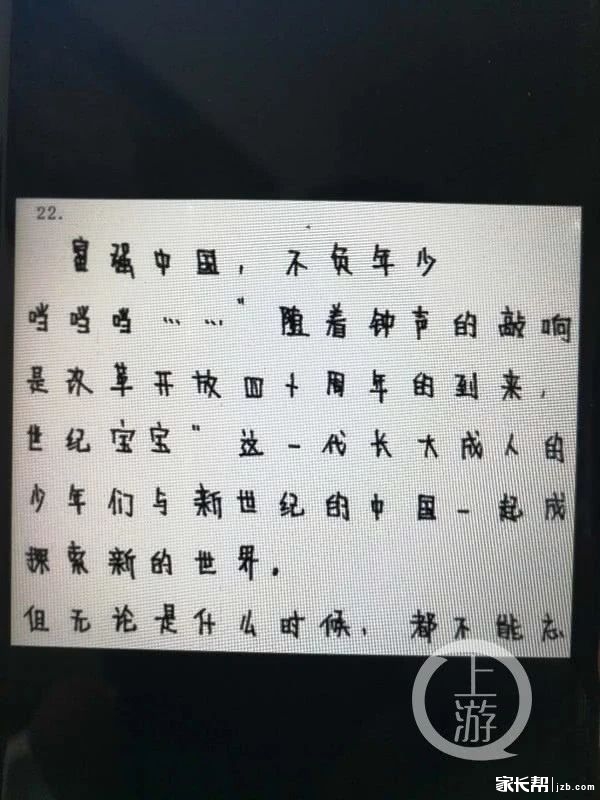 22.
富强中国，不负年少
当当当……"随着钟声的敲响
是改革开放四十周年的到来，
世纪宝宝"这一代长大成人的
少年们与新世纪的中国一起成
探索新的世界。
但无论是什么时候，都不能忘
上游
家长帮 jzb.com